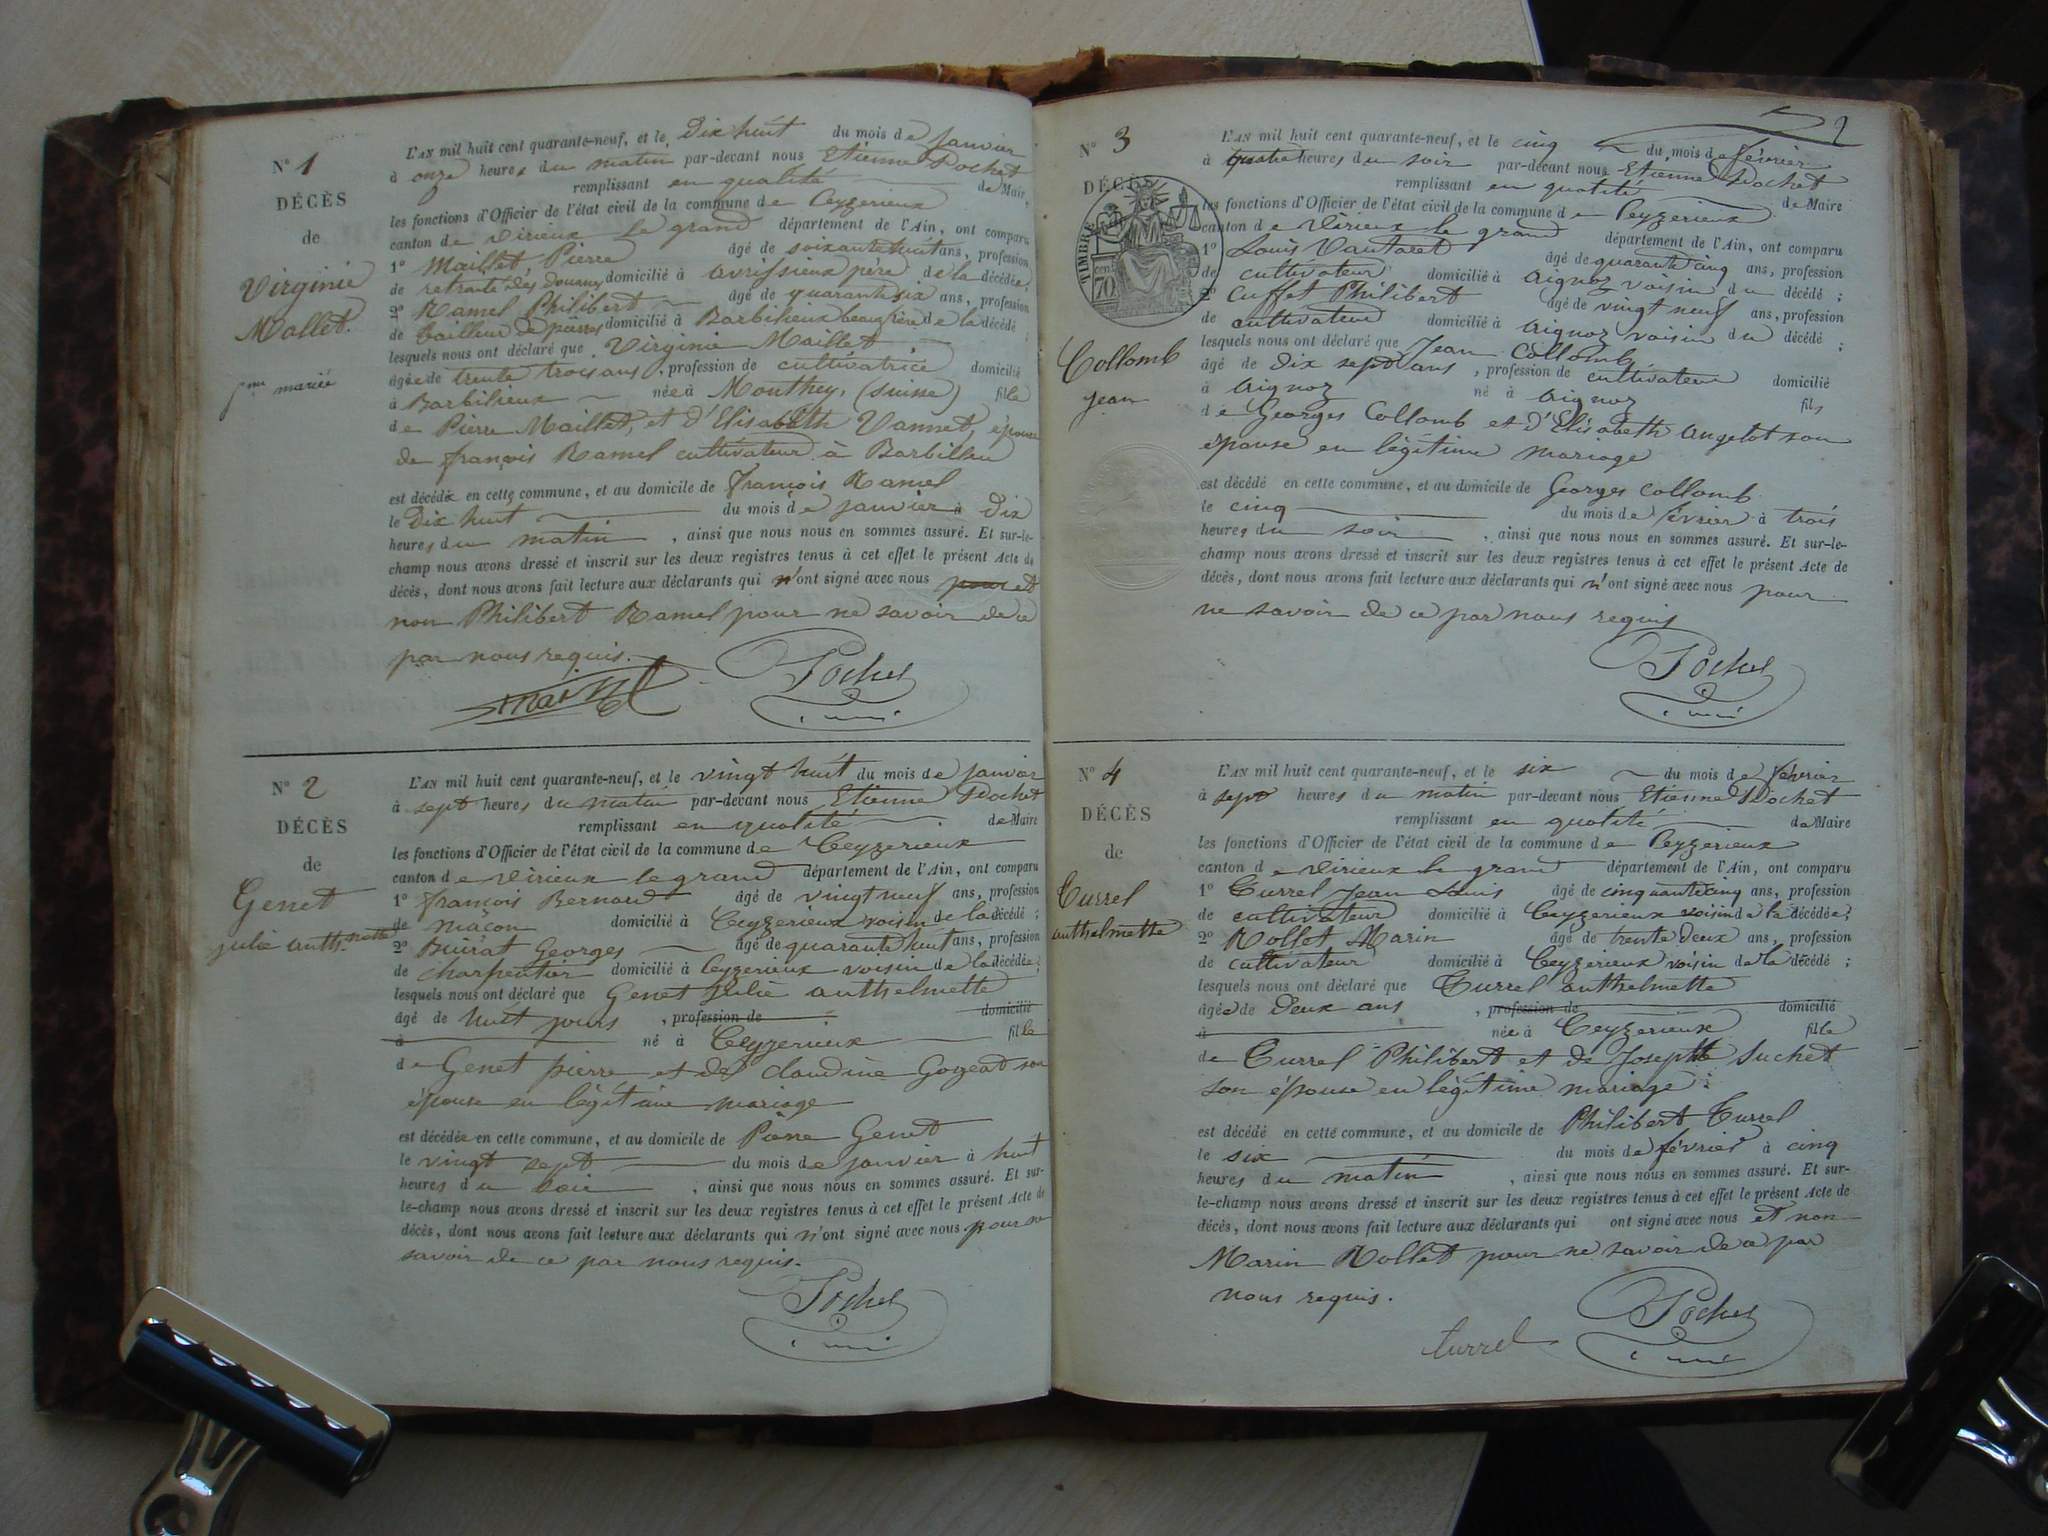 N° 1
DÉCÈS
de
Virginie
Mollet.
mariée
L'AN mil huit cent quarante-neuf, et le Dix huit du mois de Janvier
à onze heures du matin par-devant nous Etienne Pochet
remplissant en qualité de Maire
les fonctions d'Officier de l'état civil de la commune de Ceyzerieux
canton de Virieux le grand département de l'Ain, ont comparu
1° Maillet Pierre âgé de soixante huit ans, profession
de retraité des douanes domicilié à avrissieux père de la décédée;
2° Ramel Philibert âgé de quarante six ans, profession
de tailleur de pierres domicilié à Barbilieux beau frère de la décédé ;
lesquels nous ont déclaré que Virginie Maillet
âgée de trente trois ans, profession de cultivatrice domicilié
à Barbilieux née à Monthey, (suisse) fille
de Pierre Maillet, et d'Elisabeth Vannet, épouse
de françois Ramel cultivateur à Barbilieu
est décédé en cette commune, et au domicile de françois Ramel
le Dix huit du mois de janvier à dix
heures du matin, ainsi que nous nous en sommes assuré. Et sur-le-
champ nous avons dressé et inscrit sur les deux registres tenus à cet effet le présent Acte de
décès, dont nous avons fait lecture aux déclarants qui n'ont signé avec nous pour et
non Philibert Ramel pour ne savoir de ce
par nous requis.
Pochet
N° 2
DÉCÈS
de
Genet
julie anth.mette
L'AN mil huit cent quarante-neuf, et le vingt huit du mois de janvier
à sept heures du matin par-devant nous Etienne Pochet
remplissant en qualité de Maire
les fonctions d'Officier de l'état civil de la commune de Ceyzerieux
canton de Virieux le grand département de l'Ain, ont comparu
1° françois Bernard âgé de vingt neuf ans, profession
de mâcon domicilié à Ceyzerieux voisin de la décédé ;
2° Buirat Georges âgé de quarante huit ans, profession
de charpentier domicilié à Ceyzerieux voisin de la décédée;
lesquels nous ont déclaré que Genet julie anthelmette
âgé de huit jours, profession de domicilié
à né à Ceyzerieux fille
de Genet pierre et de claudine Gojeat son
épouse en légitime mariage
est décédée en cette commune, et au domicile de Pierre Genet
le vingt sept du mois de janvier à huit
heures du soir, ainsi que nous nous en sommes assuré. Et sur-
le-champ nous avons dressé et inscrit sur les deux registres tenus à cet effet le présent Acte de
décès, dont nous avons fait lecture aux déclarants qui n'ont signé avec nous pour ne
savoir de ce par nous requis.
Pochet
2
N° 3
DÉCÈS
TIMBRE
70
Collomb
jean
L'AN mil huit cent quarante-neuf, et le cinq du mois de février
à quatre heures du soir par-devant nous Etienne Pochet
remplissant en qualité de Maire
les fonctions d'Officier de l'état civil de la commune de Ceyzerieux
canton de Virieux le grand département de l'Ain, ont comparu
1° Louis Vautaret âgé de quarante cinq ans, profession
de cultivateur domicilié à aignoz voisin du décédé ;
2° Cuffet Philibert âgé de vingt neuf ans, profession
de cultivateur domicilié à aignoz voisin du décédé ;
lesquels nous ont déclaré que Jean Collomb
âgé de dix sept ans, profession de cultivateur domicilié
à aignoz né à aignoz fils
de Georges Collomb et d'Elisabeth angelot son
épouse en légitime mariage
est décédé en cette commune, et au domicile de Georges Collomb
le cinq du mois de février à trois
heures du soir, ainsi que nous nous en sommes assuré. Et sur-le-
champ nous avons dressé et inscrit sur les deux registres tenus à cet effet le présent Acte de
décès, dont nous avons fait lecture aux déclarants qui n'ont signé avec nous pour
ne savoir de ce par nous requis
Pochet
N° 4
DÉCÈS
de
Turrel
anthelmette
L'AN mil huit cent quarante-neuf, et le six du mois de février
à sept heures du matin par-devant nous Etienne Pochet
remplissant en qualité de Maire
les fonctions d'Officier de l'état civil de la commune de Ceyzerieux
canton de Virieux le grand département de l'Ain, ont comparu
1° Turrel Jean Louis âgé de cinquante cinq ans, profession
de cultivateur domicilié à Ceyzerieux voisin de la décédée;
2° Rollet Marin âgé de trente deux ans, profession
de cultivateur domicilié à Ceyzerieux voisin de la décédé ;
lesquels nous ont déclaré que Turrel anthelmette
âgée de deux ans, profession de domicilié
à née à Ceyzerieux fille
de Turrel Philibert et de Josephte Suchet
son épouse en légitime mariage
est décédé en cette commune, et au domicile de Philibert Turrel
le six du mois de février à cinq
heures du matin, ainsi que nous nous en sommes assuré. Et sur-
le-champ nous avons dressé et inscrit sur les deux registres tenus à cet effet le présent Acte de
décès, dont nous avons fait lecture aux déclarants qui ont signé avec nous et non
Marin Rollet pour ne savoir de ce par
nous requis.
turrel Pochet